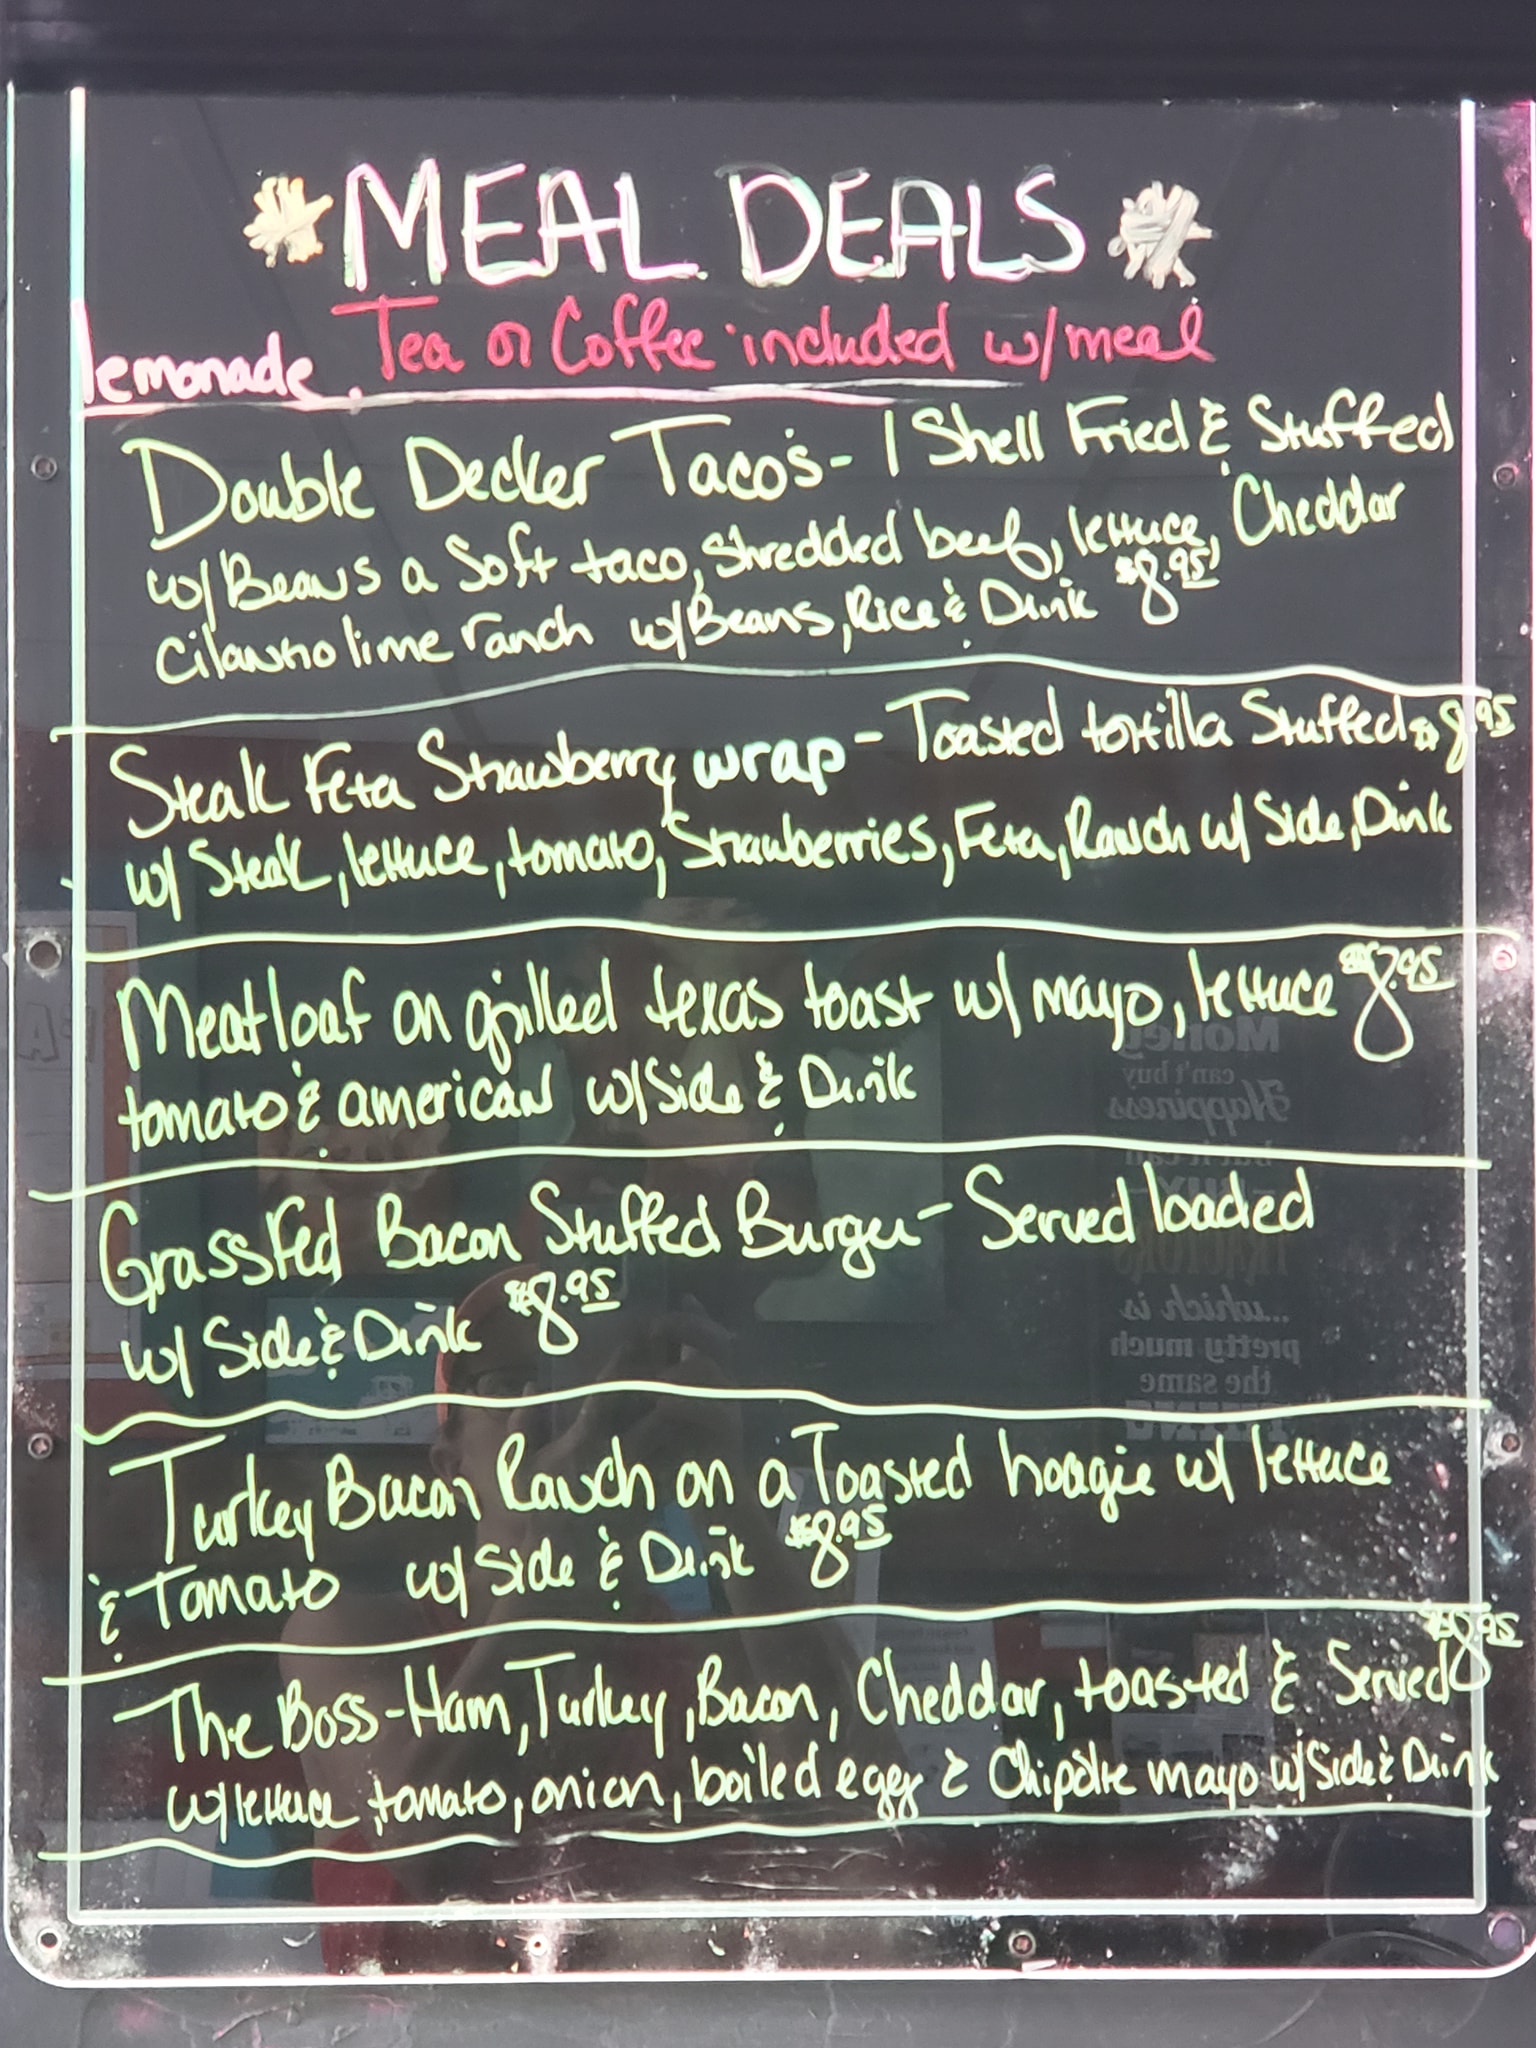 MEAL DEALS
lemonade. Tea or Coffee included w/meal
Double Decker Taco's - 1 Shell Fried & Stuffed
w/Beans a Soft taco, Shredded beef, lettuce, Cheddar
Cilantro lime ranch w/Beans, Rice & Drink $8.95
Steak Feta Strawberry wrap - Toasted tortilla Stuffed $8.95
w/ Steak, lettuce, tomato, Strawberries, Feta, Ranch w/ Side, Drink
Meatloaf on grilled texas toast w/ mayo, lettuce $8.95
tomato & american w/Side & Drink
Grassfed Bacon Stuffed Burger - Served loaded
w/ Side & Drink $8.95
Turkey Bacon Ranch on a Toasted hoagie w/ lettuce
& Tomato w/ Side & Drink $8.95
The Boss - Ham, Turkey, Bacon, Cheddar, toasted & Served $8.95
w/lettuce, tomato, onion, boiled egg & Chipotle mayo w/Side & Drink
Money
can't buy
Happiness
but it can
BUY
TRACTORS
...which is
pretty much
the same
THING